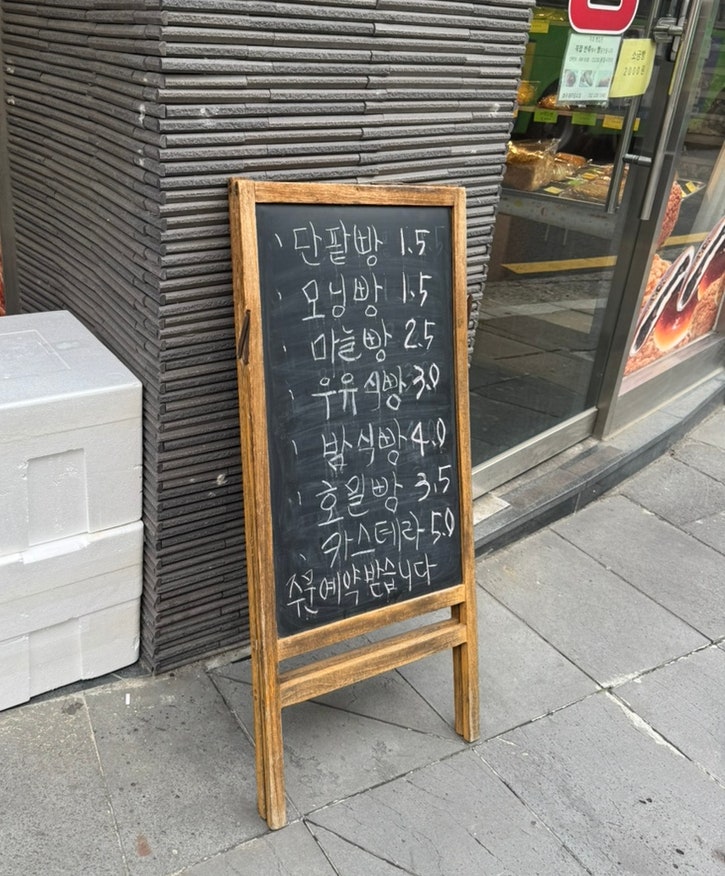 단팥빵 1.5
모닝빵 1.5
마늘빵 2.5
우유식빵 3.0
밤식빵 4.0
호밀빵 3.5
카스테라 5.0
주문예약받습니다
소금빵
2000원